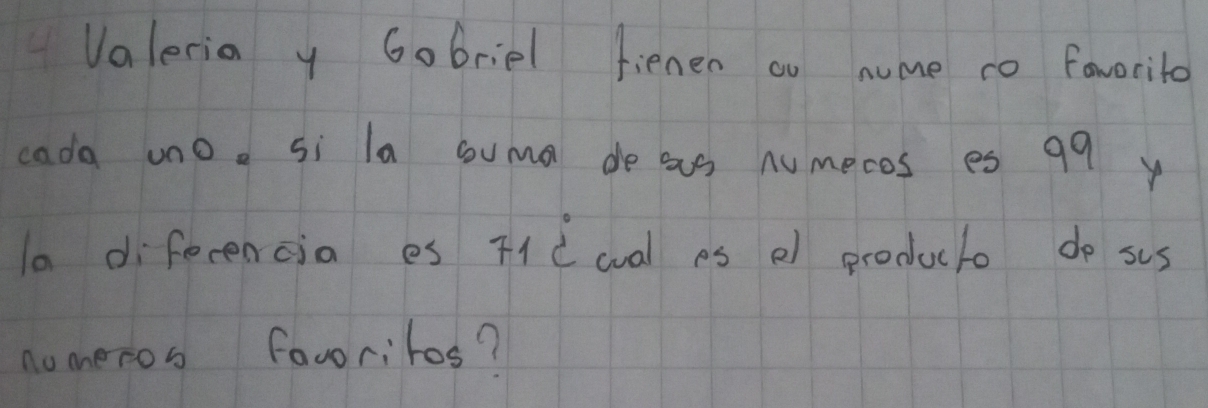 4 Valeria y Gabriel tienen su nume ro favorito
cada uno. si la suma de sus numeros es 99 y
la diferencia es 71 ¿ cual es el producto de sus
numeros favoritos?